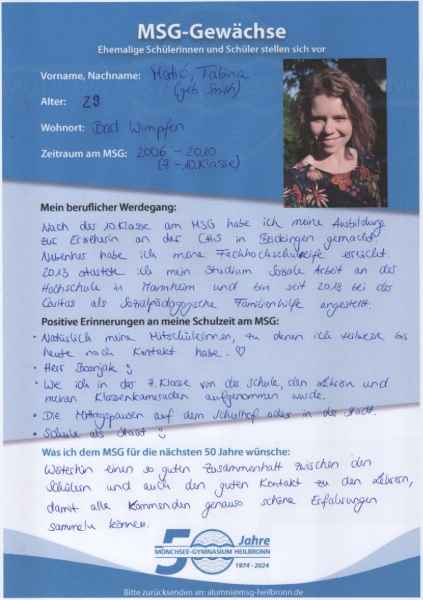 MSG-Gewächse
Ehemalige Schülerinnen und Schüler stellen sich vor
Vorname, Nachname: Matić, Tabina
(geb. Smith)
Alter: 29
Wohnort: Bad Wimpfen
Zeitraum am MSG: 2006 - 2010
(7 - 10. Klasse)
Mein beruflicher Werdegang:
Nach der 10. Klasse am MSG habe ich meine Ausbildung
zur Erzieherin an der in Böckingen gemacht.
Nebenher habe ich meine Fachhochschulreife erreicht.
2013 startete ich mein Studium Soziale Arbeit an der
Hochschule in Mannheim und bin seit 2018 bei der
Caritas als Sozialpädagogische Familienhilfe angestellt.
Positive Erinnerungen an meine Schulzeit am MSG:
• Natürlich meine Mitschülerinnen, zu denen ich teilweise bis
heute noch Kontakt habe. ♡
• Herr :)
• Wie ich in der 7. Klasse von der Schule, den Lehrern und
meinen Klassenkameraden aufgenommen wurde.
• Die Mittagspausen auf dem Schulhof oder in der Stadt.
• Schule als Staat :)
Was ich dem MSG für die nächsten 50 Jahre wünsche:
Weiterhin einen so guten Zusammenhalt zwischen den
Schülern und auch den guten Kontakt zu den Lehrern,
damit alle Kommenden genauso schöne Erfahrungen
sammeln können.
50 Jahre
MÖNCHSEE-GYMNASIUM HEILBRONN
1974 - 2024
Bitte zurücksenden an: alumni@msg-heilbronn.de